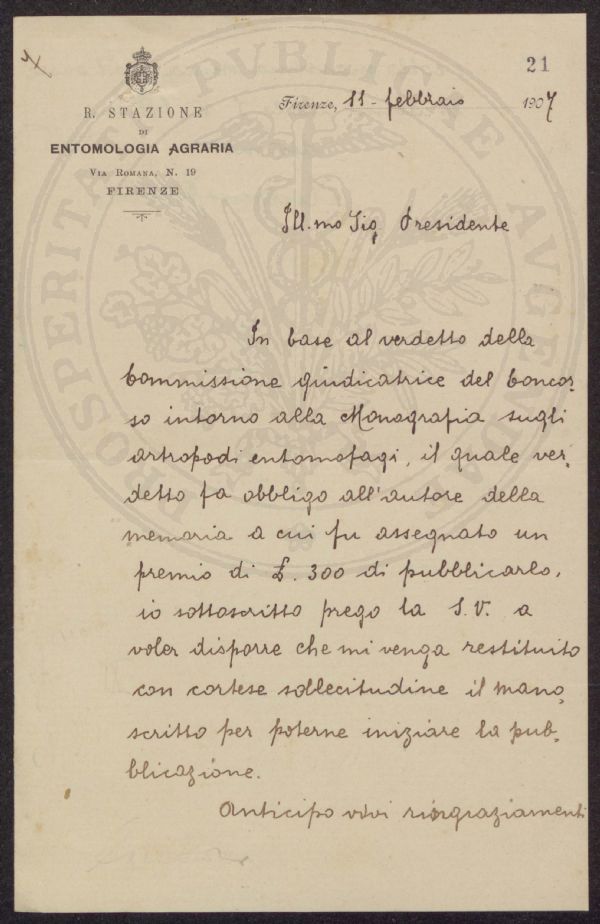 21
R. STAZIONE
DI
ENTOMOLOGIA AGRARIA
VIA ROMANA, N. 19
FIRENZE
Firenze, 11 - febbraio 1907
Ill.mo Sig. Presidente
In base al verdetto della
Commissione giudicatrice del Concor-
so intorno alla Monografia sugli
artropodi entomofagi, il quale ver-
detto fa obbligo all'autore della
memoria a cui fu assegnato un
premio di £. 300 di pubblicarlo,
io sottoscritto prego la S. V. a
voler disporre che mi venga restituito
con cortese sollecitudine il mano-
scritto per poterne iniziare la pub-
blicazione.
Anticipo vivi ringraziamenti
PROSPERITATI PVBLICAE AVGENDAE